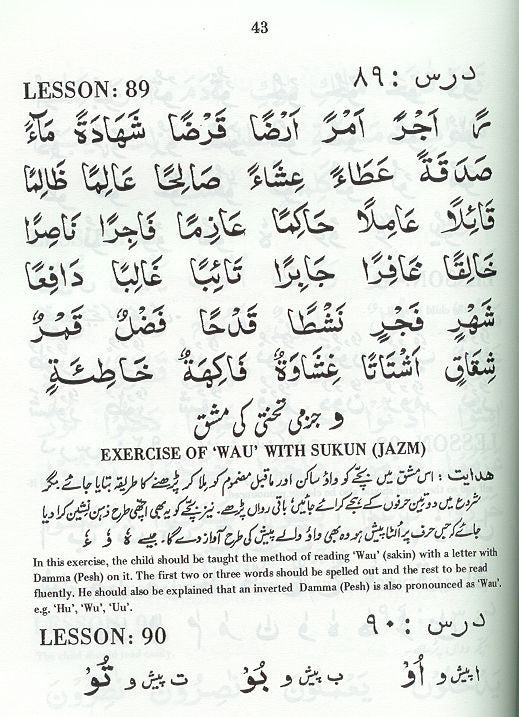 43
LESSON: 89 درس : ۸۹
رً اَجْرً اَمْرً اَرْضًا قَرْضًا شَهَادَةً مَآءً
صَدَقَةً عَطَاءً عِشَاءً صَالِحًا عَالِمًا ظَالِمًا
قَائِلًا عَامِلًا حَاكِمًا عَازِمًا فَاجِرًا نَاصِرًا
خَالِقًا غَافِرًا جَابِرًا تَائِبًا غَالِبًا دَافِعًا
شَهْرٍ فَجْرٍ نَشْطًا قَدْحًا فَضْلٌ قَمَرٌ
شِقَاقٍ اَشْتَاتًا غِشَاوَةٌ فَاكِهَةٌ خَاطِئَةٍ
و جزمی تختی کی مشق
EXERCISE OF ‘WAU’ WITH SUKUN (JAZM)
ھدایت : اس مشق میں بچّے کو واؤ ساکن اور ماقبل مضموم کو ملا کر پڑھنے کا طریقہ بتایا جائے مگر
شروع میں دو تین حرفوں کے ہجے کرائے جائیں باقی رواں پڑھے۔ نیز بچّے کو یہ بھی اچھی طرح ذہن نشین کرا دیا
جائے کہ جس حرف پر اُلٹا پیش ہو وہ بھی واؤ والے پیش کی طرح آواز دے گا۔ جیسے ہٗ وٗ ءٗ
In this exercise, the child should be taught the method of reading ‘Wau’ (sakin) with a letter with
Damma (Pesh) on it. The first two or three words should be spelled out and the rest to be read
fluently. He should also be explained that an inverted Damma (Pesh) is also pronounced as ‘Wau’.
e.g. ‘Hu’, ‘Wu’, ‘Uu’.
LESSON: 90 درس : ۹۰
ا پیش و اُوْ ب پیش و بُوْ ت پیش و تُوْ